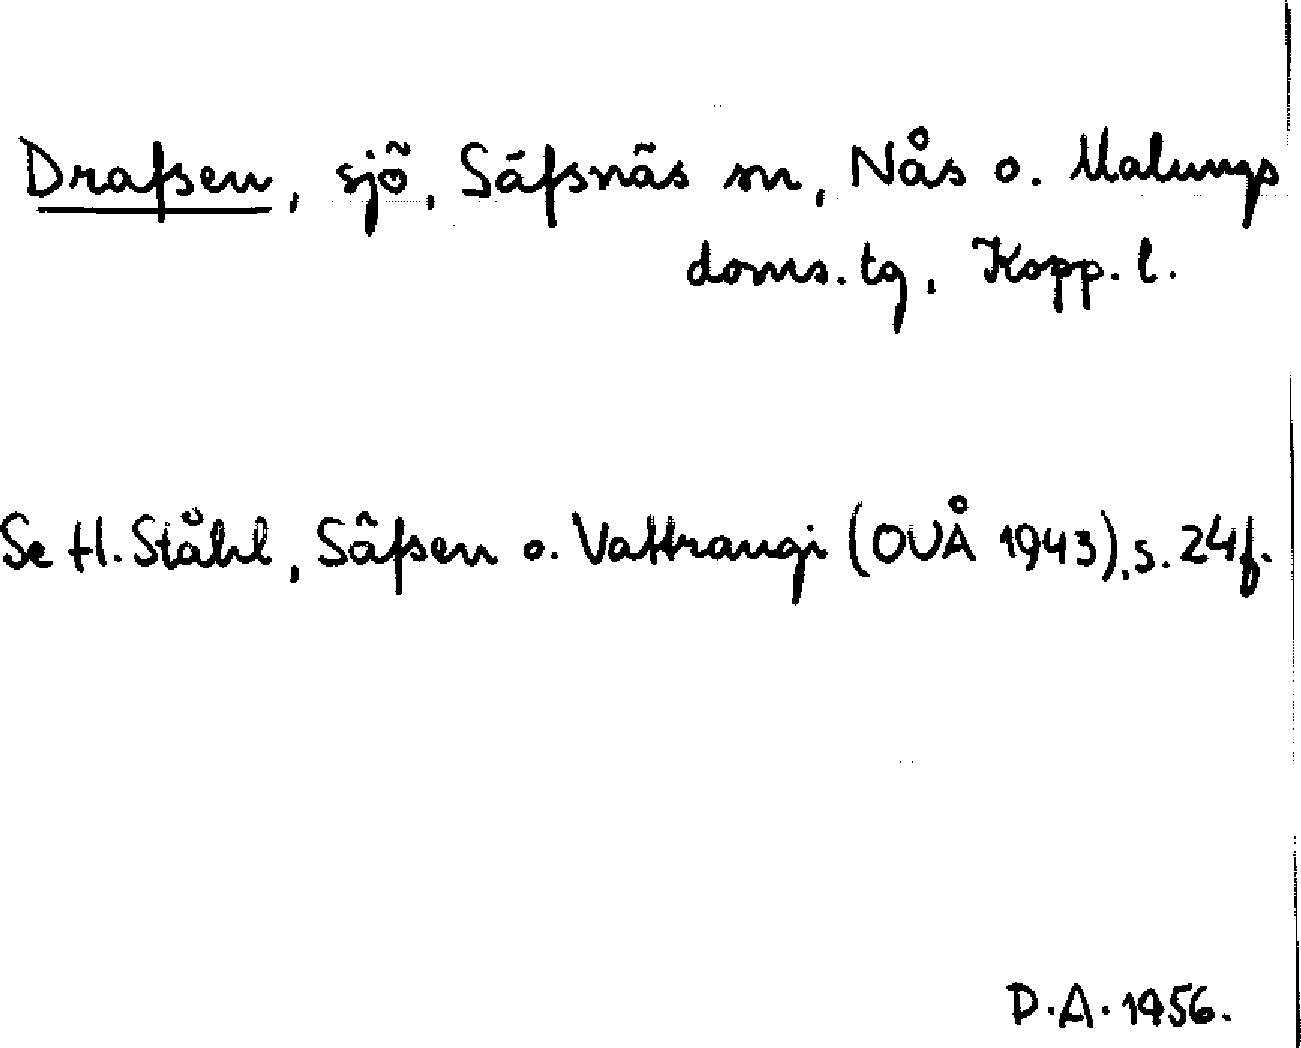 Drafsen, sjö, Säfsnäs sn, Nås o. Malungs
doms.tg, Kopp. l.
Se H. Ståhl, Säfsen o. Vattrangi (OUÅ 1943), s. 24 f.
D.A. 1956.